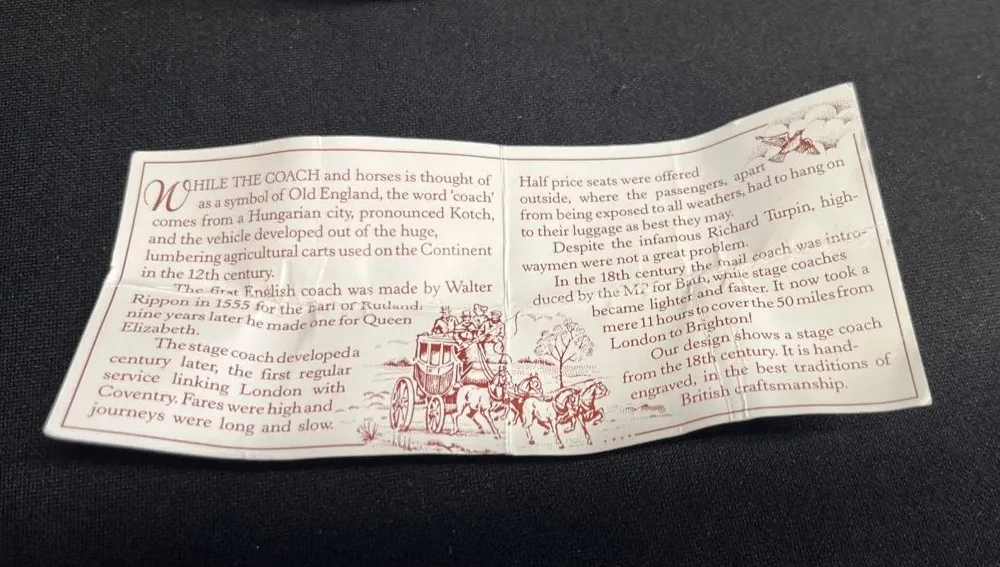 WHILE THE COACH and horses is thought of
as a symbol of Old England, the word 'coach'
comes from a Hungarian city, pronounced Kotch,
and the vehicle developed out of the huge,
lumbering agricultural carts used on the Continent
in the 12th century.
The first English coach was made by Walter
Rippon in 1555 for the Earl of Rutland:
nine years later he made one for Queen
Elizabeth.
The stage coach developed a
century later, the first regular
service linking London with
Coventry. Fares were high and
journeys were long and slow.
Half price seats were offered
outside, where the passengers, apart
from being exposed to all weathers, had to hang on
to their luggage as best they may.
Despite the infamous Richard Turpin, high-
waymen were not a great problem.
In the 18th century the mail coach was intro-
duced by the MP for Bath, while stage coaches
became lighter and faster. It now took a
mere 11 hours to cover the 50 miles from
London to Brighton!
Our design shows a stage coach
from the 18th century. It is hand-
engraved, in the best traditions of
British craftsmanship.